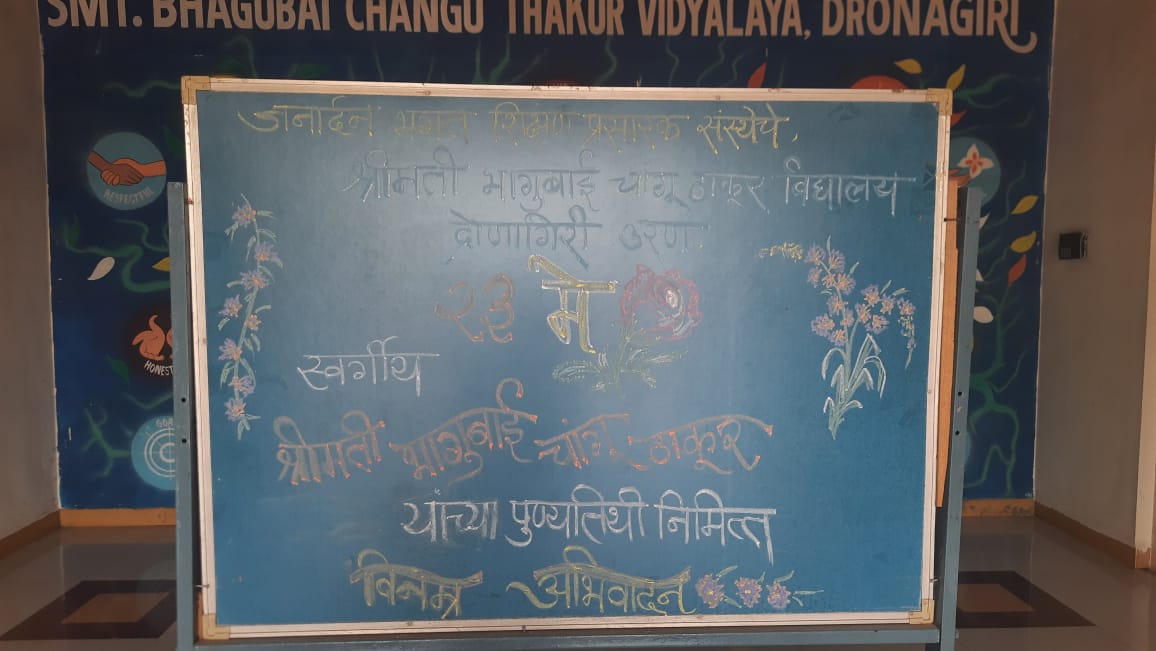 SMT. BHAGUBAI CHANGU THAKUR VIDYALAYA, DRONAGIRI
जनार्दन भगत शिक्षण प्रसारक संस्थेचे,
श्रीमती भागुबाई चांगू ठाकूर विद्यालय
द्रोणागिरी उरण.
२३ मे
स्वर्गीय
श्रीमती भागुबाई चांगू ठाकूर
यांच्या पुण्यतिथी निमित्त
विनम्र अभिवादन
RESPECTFUL
HONEST
GOAL